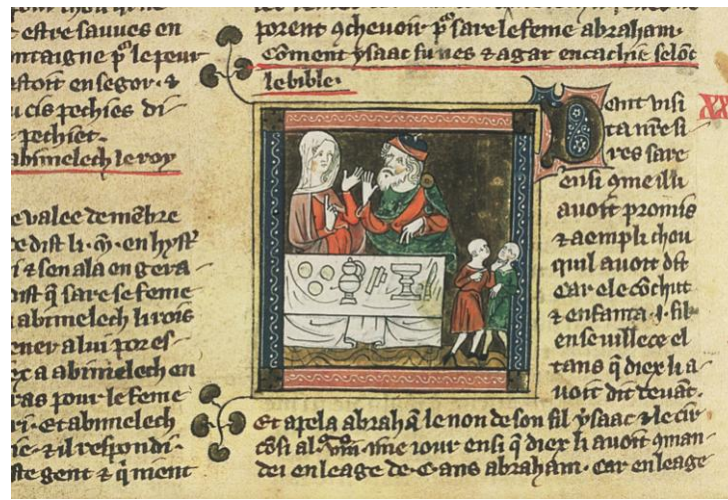 estre sauves en
ntaigne pͦ le peur
estoit en segor · ⁊
u cis pechies di
pechiet ·
abimelech le roy
e valee de mēbre
i ⁊ sen ala en gera
dist q̄ sare se feme
abimelech li rois
ener a lui por es
a abimelech en
ras pour le feme
ri · Et abimelech
ie · ⁊ il respondi ·
ste gent ⁊ q̄ ment
porent ꝯchevoir pͦ sare le feme abraham ·
Cōment ysaac fu nes ⁊ agar encachie selōt
le bible ·
Dont visi
ta nr̄e si
res sare
ensi ꝯme il li
avoit promis
⁊ aempli chou
quil avoit dit
Car ele cōchut
⁊ enfanta · i · fil
en se viellece el
tans q̄ diex li a
voit dit devāt ·
Et apela abrahā le non de son fil ysaac ⁊ le cir
cōsi al · viii · ime iour ensi q̄ diex li avoit ꝯman
dei en leage de · C · ans abraham · Car en leage